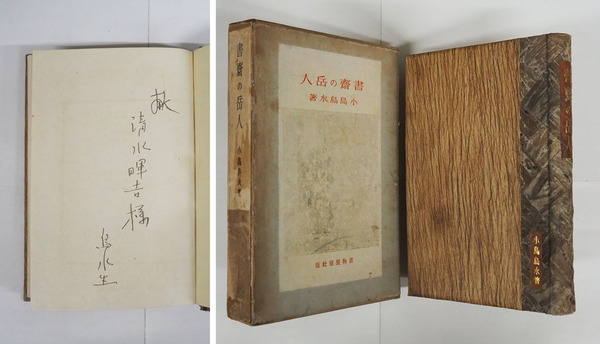 献
清水暉吉様
烏水生
書齋の岳人
小島烏水著
人岳の齋書
著水烏島小
版社展物書
小島烏水著